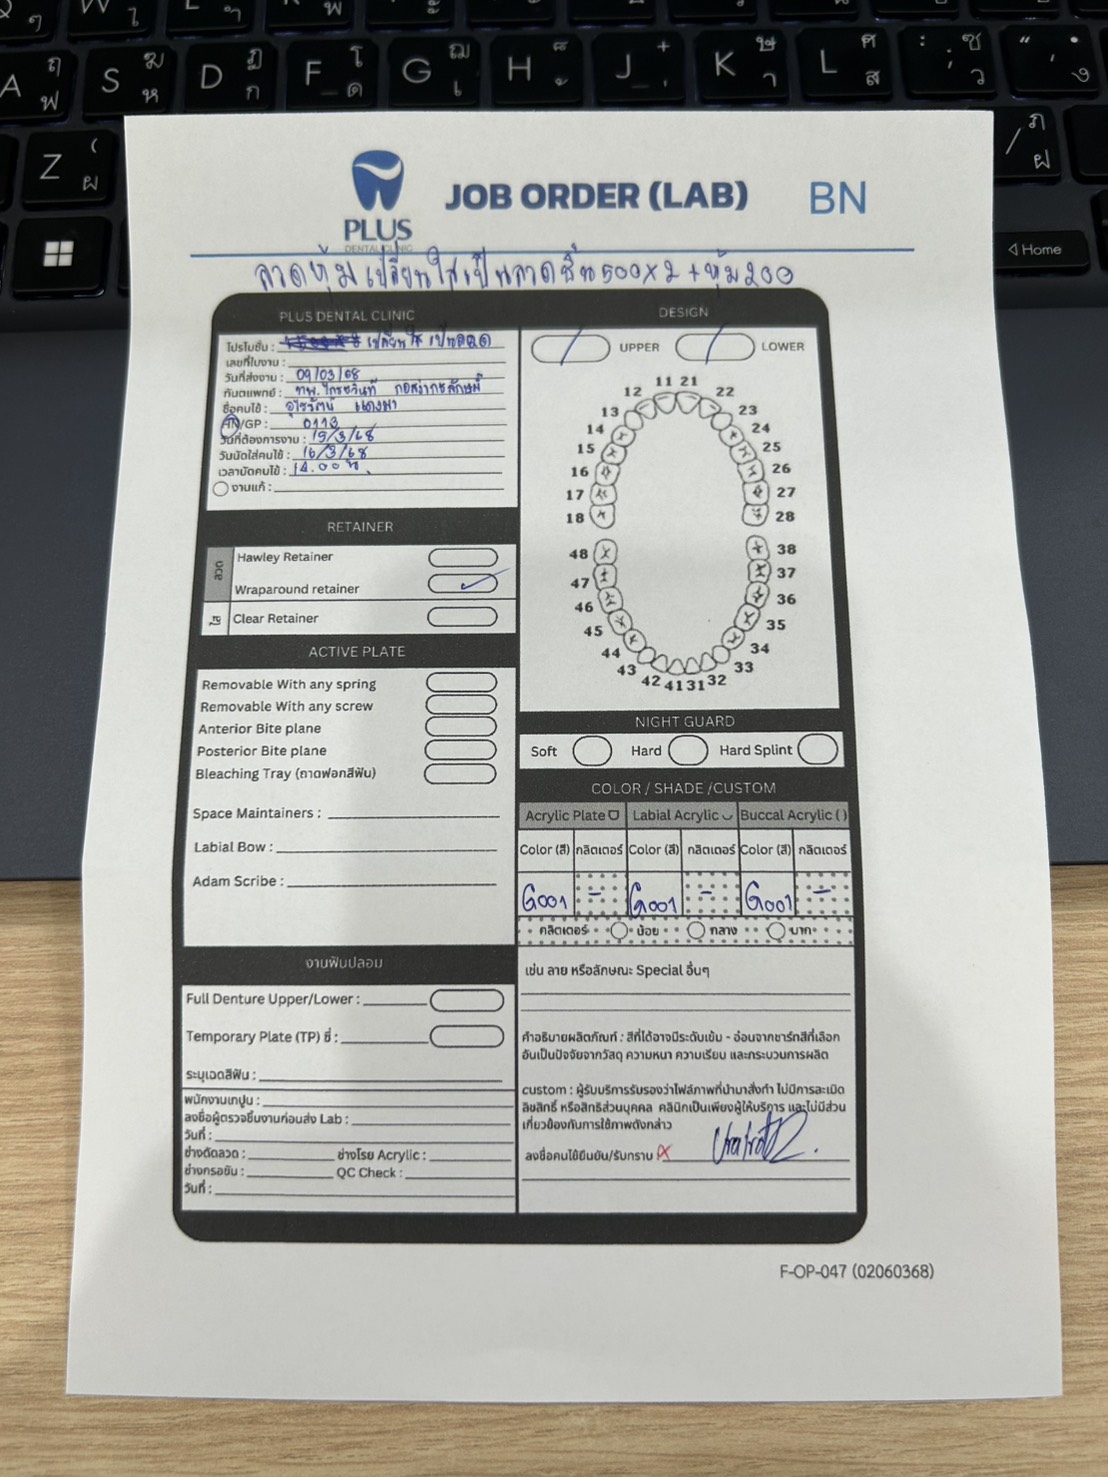 PLUS
DENTAL CLINIC
JOB ORDER (LAB)
BN
ลวดหุ้ม เปลี่ยนใสเป็นลวดชิ้น500x2 + หุ้ม200
PLUS DENTAL CLINIC
โปรโมชั่น : เปลี่ยนใส เป็นลวด
เลขที่ใบงาน :
วันที่ส่งงาน : 09/03/68
ทันตแพทย์ : ทพ.ไกรชวินท์
ชื่อคนไข้ : อุไรรัตน์ แดงผา
HN/GP : 0113
วันที่ต้องการงาน : 15/3/68
วันนัดใส่คนไข้ : 16/3/68
เวลานัดคนไข้ : 14.00 น.
งานแก้ :
RETAINER
ลวด
Hawley Retainer
Wraparound retainer
ใส
Clear Retainer
ACTIVE PLATE
Removable With any spring
Removable With any screw
Anterior Bite plane
Posterior Bite plane
Bleaching Tray (ถาดฟอกสีฟัน)
Space Maintainers :
Labial Bow :
Adam Scribe :
งานฟันปลอม
Full Denture Upper/Lower :
Temporary Plate (TP) ซี่ :
ระบุเฉดสีฟัน :
พนักงานเทปูน :
ลงชื่อผู้ตรวจชิ้นงานก่อนส่ง Lab :
วันที่ :
ช่างดัดลวด : ช่างโรย Acrylic :
ช่างกรอขัด : QC Check :
วันที่ :
DESIGN
UPPER
LOWER
11 21
12 22
13 23
14 24
15 25
16 26
17 27
18 28
48 38
47 37
46 36
45 35
44 34
43 33
42 41 31 32
NIGHT GUARD
Soft Hard Hard Splint
COLOR / SHADE /CUSTOM
Acrylic Plate Labial Acrylic Buccal Acrylic ( )
Color (สี) กลิตเตอร์ Color (สี) กลิตเตอร์ Color (สี) กลิตเตอร์
G001 - G001 - G001 -
กลิตเตอร์ น้อย กลาง มาก
เช่น ลาย หรือลักษณะ Special อื่นๆ
คำอธิบายผลิตภัณฑ์ : สีที่ได้อาจมีระดับเข้ม - อ่อนจากชาร์ทสีที่เลือก
อันเป็นปัจจัยจากวัสดุ ความหนา ความเรียบ และกระบวนการผลิต
custom : ผู้รับบริการรับรองว่าไฟล์ภาพที่นำมาสั่งทำ ไม่มีการละเมิด
ลิขสิทธิ์ หรือสิทธิส่วนบุคคล คลินิกเป็นเพียงผู้ให้บริการ และไม่มีส่วน
เกี่ยวข้องกับการใช้ภาพดังกล่าว
ลงชื่อคนไข้ยืนยัน/รับทราบ
F-OP-047 (02060368)